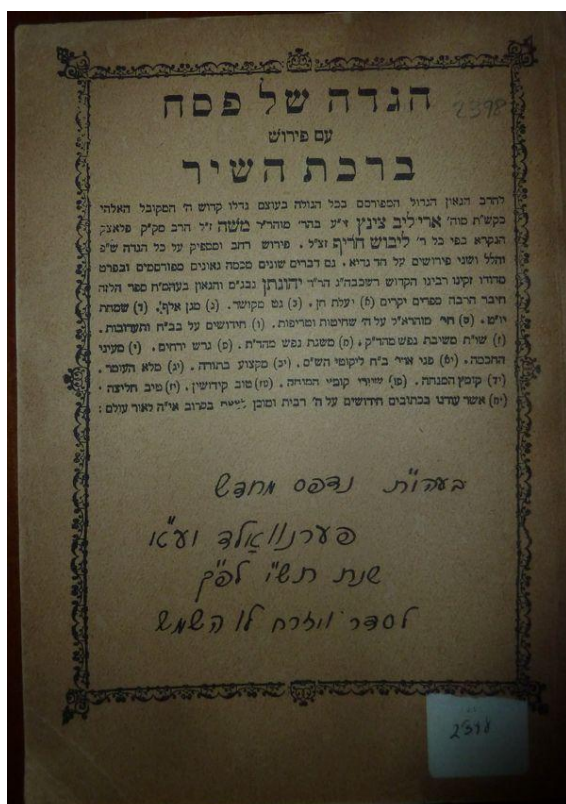 הגדה של פסח
2398
עם פירוש
ברכת השיר
להרב הגאון הגדול המפורסם בכל הגולה בעוצם גדלו קדוש ה' המקובל האלהי
בקש"ת מוה' ארי ליב צינץ זי"ע בהר' מוהר"ר משה ז"ל הרב מק"ק פלאצק
הנקרא בפי כל ר' ליבוש חריף זצ"ל. פירוש רחב ומספיק על כל הגדה ש"פ
והלל ושני פירושים על חד גדיא. גם דברים שונים מכמה גאונים מפורסמים ובפרט
מדודו זקנו רבינו הקדוש רשכבה"ג הר"ר יהונתן והגאון בעהמ"ח ספר הלזה
חיבר הרבה ספרים יקרים (א) יעלת חן. (ב) גט מקושר. (ג) מגן אלף. (ד) שמחת
יו"ט. (ה) חי' מוהרא"ל על ה' שחיטות וטריפות. (ו) חידושים על בב"ח ותערובות.
(ז) שו"ת משיבת נפש מהד"ק. (ח) משנת נפש מהד"ת. (ט) גרש ירחים. (י) מעיני
החכמה. (יא) פני ארי' ב"ח ליקוטי הש"ס. (יב) מקצוע בתורה. (יג) מלא העומר.
(יד) קומץ המנחה. (טו) שיורי קומץ המנחה. (טז) טוב קידושין. (יז) טיב חליצה.
(יח) אשר עודנו בכתובים חידושים על ה' רבית ומוכן בקרוב אי"ה לאור עולם:
בעהי"ת נדפס מחדש
פערנוואַלד יע"א
שנת תש"י לפ"ק
לסדר ויזרח לו השמש